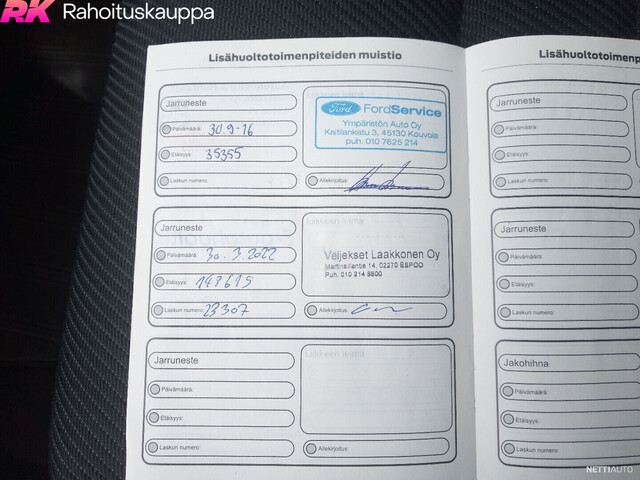 RK Rahoituskauppa
Lisähuoltotoimenpiteiden muistio
Jarruneste
Päivämäärä: 30.9-16
Etäisyys: 35355
Laskun numero:
Ford FordService
Ympäristön Auto Oy
Kaitilankatu 3, 45130 Kouvola
puh. 010 7625 214
Allekirjoitus:
Jarruneste
Päivämäärä: 30.3.2022
Etäisyys: 143615
Laskun numero: 23307
Liikkeen leima
Veljekset Laakkonen Oy
Martinsillantie 14, 02270 ESPOO
Puh. 010 214 8800
Allekirjoitus:
Jarruneste
Päivämäärä:
Etäisyys:
Laskun numero:
Liikkeen leima
Allekirjoitus:
Lisähuoltotoimenp
Jarruneste
Päivämäärä:
Etäisyys:
Laskun numero:
Jarruneste
Päivämäärä:
Etäisyys:
Laskun numero:
Jakohihna
Päivämäärä:
Etäisyys:
Laskun numero:
NETTIAUTO